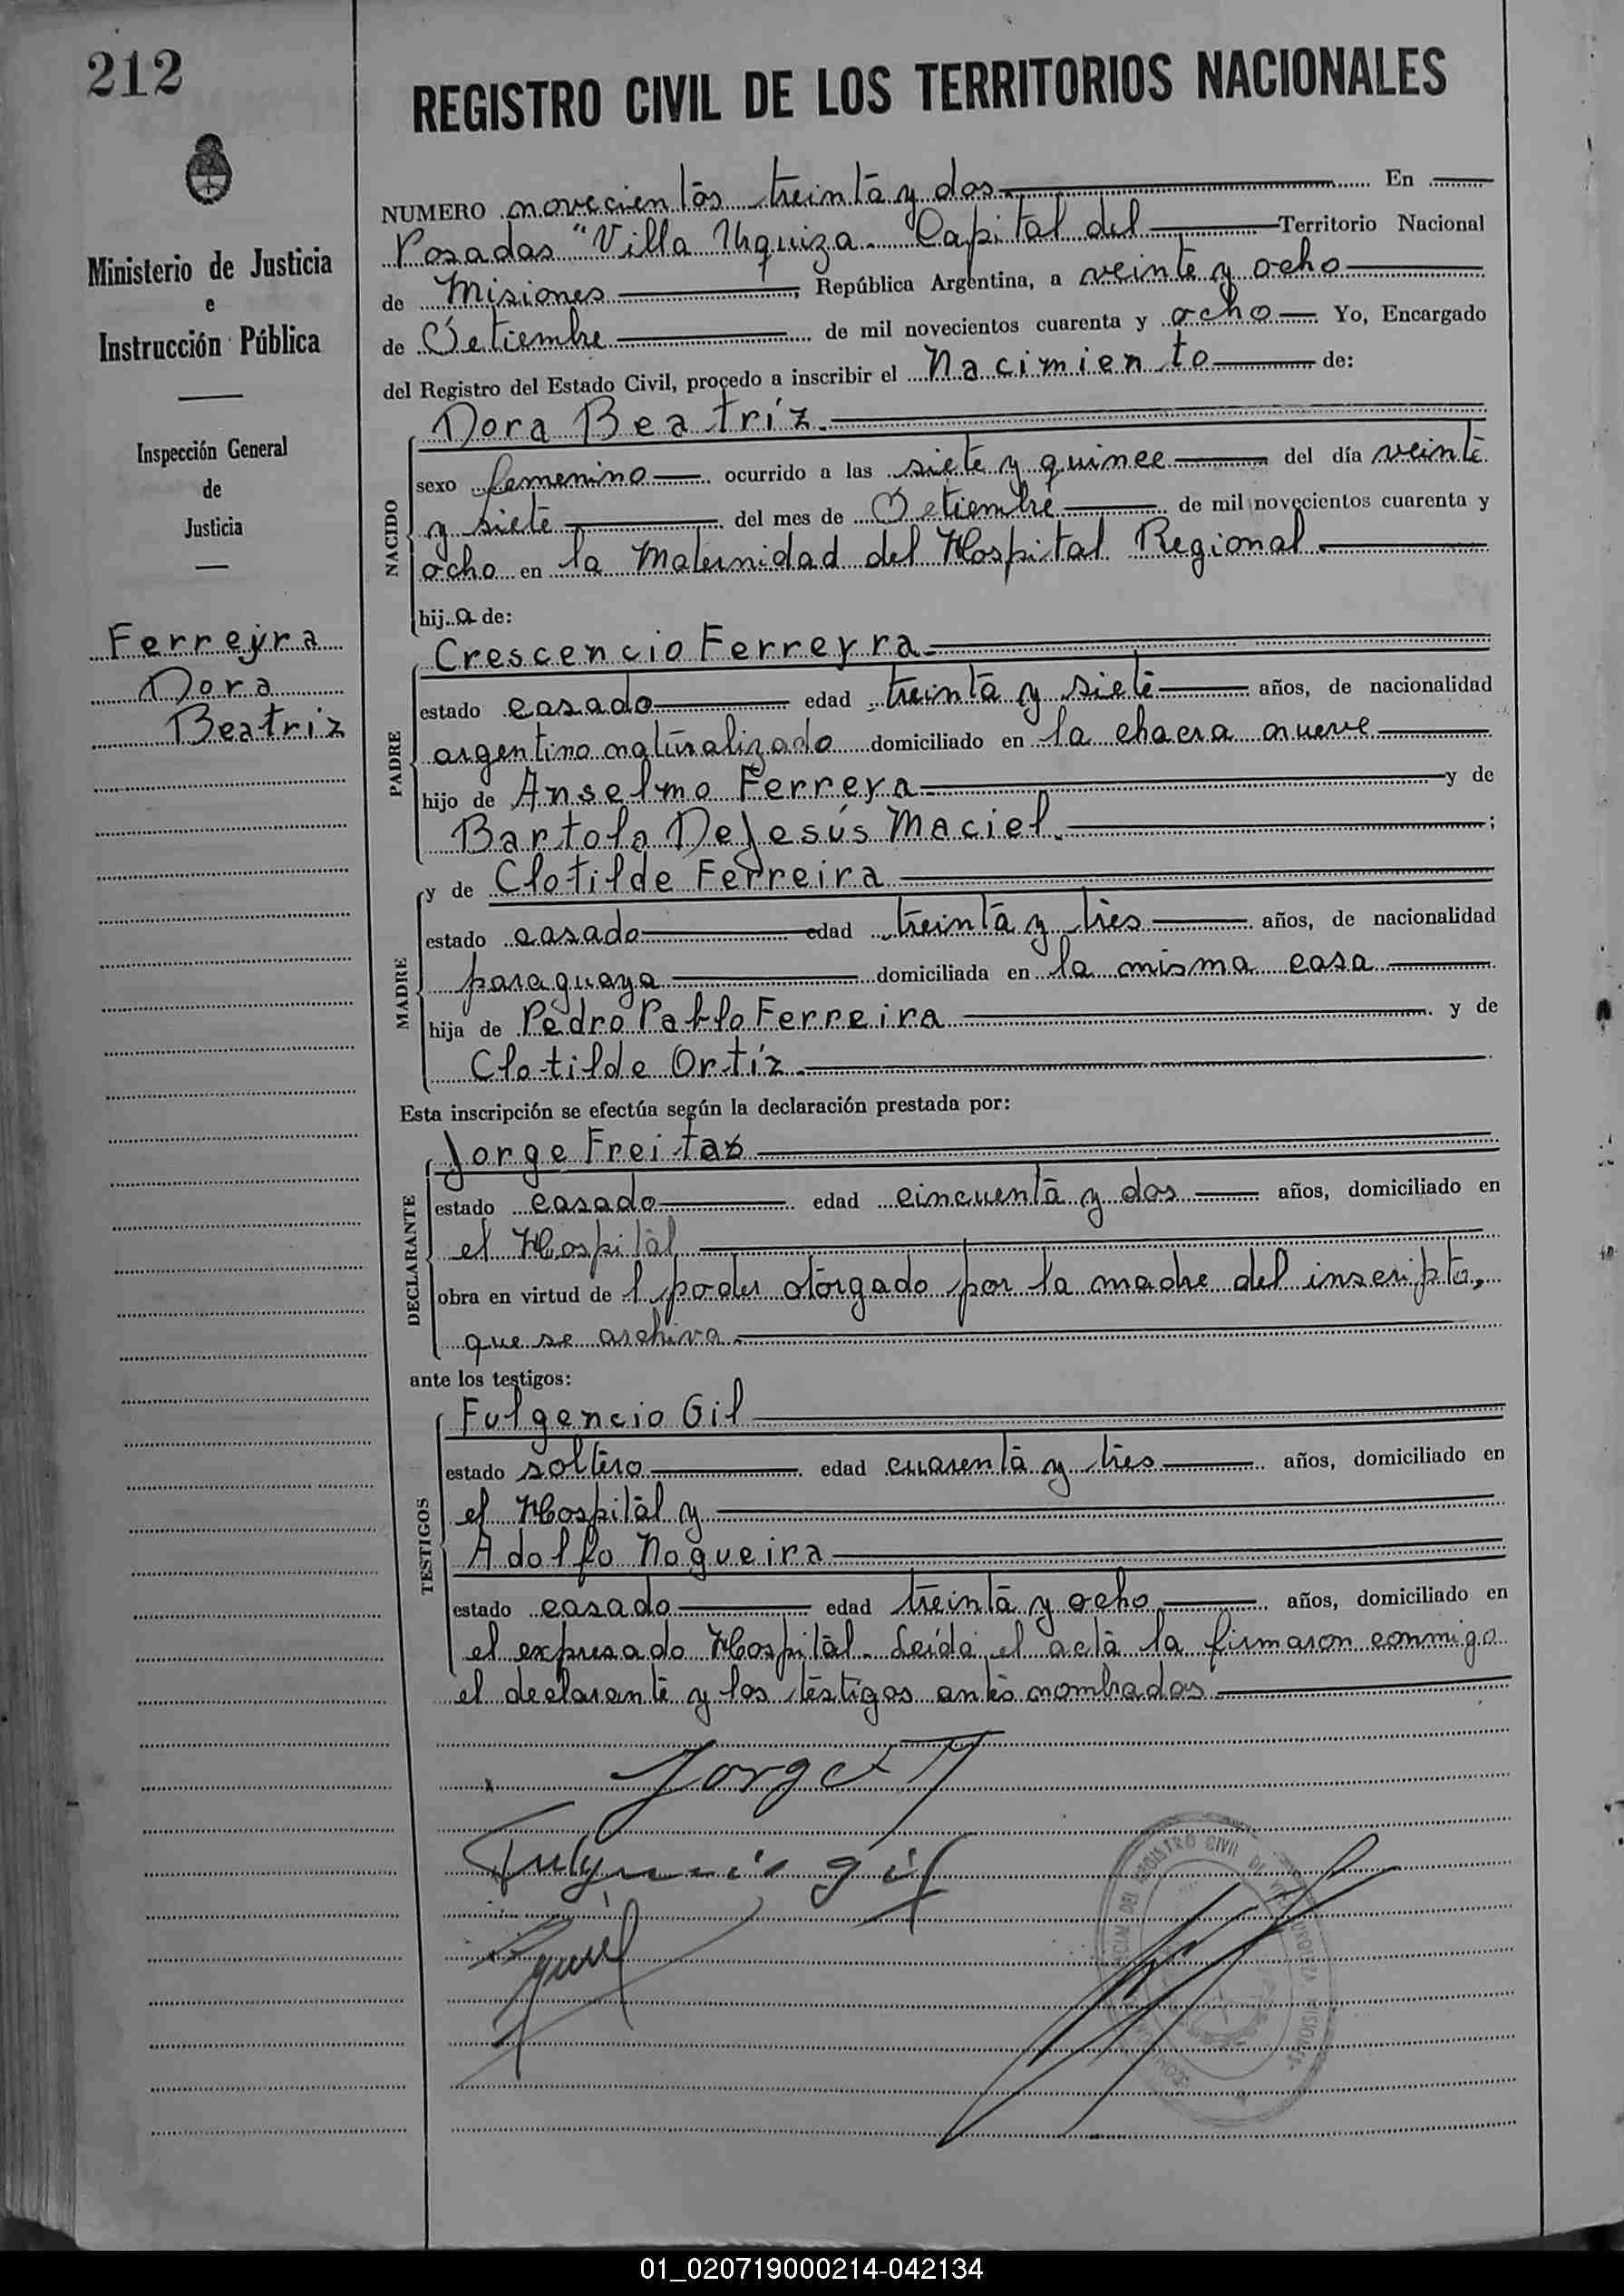 212
REGISTRO CIVIL DE LOS TERRITORIOS NACIONALES
Ministerio de Justicia
e
Instrucción Pública
Inspección General
de
Justicia
Ferreyra
Dora
Beatriz
NUMERO novecientos treinta y dos En
Posadas "Villa Urquiza Capital del Territorio Nacional
de Misiones, República Argentina, a veinte y ocho
de Setiembre de mil novecientos cuarenta y ocho Yo, Encargado
del Registro del Estado Civil, procedo a inscribir el Nacimiento de:
NACIDO
Dora Beatríz.
sexo femenino ocurrido a las siete y quince del día veinte
y siete del mes de Setiembre de mil novecientos cuarenta y
ocho en la Maternidad del Hospital Regional.
hija de:
PADRE
Crescencio Ferreyra.
estado casado edad treinta y siete años, de nacionalidad
argentino naturalizado domiciliado en la chacra nueve
hijo de Anselmo Ferreya y de
Bartola DeJesús Maciel. ;
MADRE
y de Clotilde Ferreira
estado casado edad treinta y tres años, de nacionalidad
paraguaya domiciliada en la misma casa
hija de Pedro Pablo Ferreira y de
Clotilde Ortíz.
Esta inscripción se efectúa según la declaración prestada por:
DECLARANTE
Jorge Freitas
estado casado edad cincuenta y dos años, domiciliado en
el Hospital
obra en virtud de l poder otorgado por la madre del inscripto,
que se archiva.
ante los testigos:
TESTIGOS
Fulgencio Gil
estado soltero edad cuarenta y tres años, domiciliado en
el Hospital y
Adolfo Nogueira
estado casado edad treinta y ocho años, domiciliado en
el expresado Hospital. Leída el acta la firmaron conmigo
el declarante y los testigos antes nombrados.
Jorge
Fulgencio Gil
01_020719000214-042134